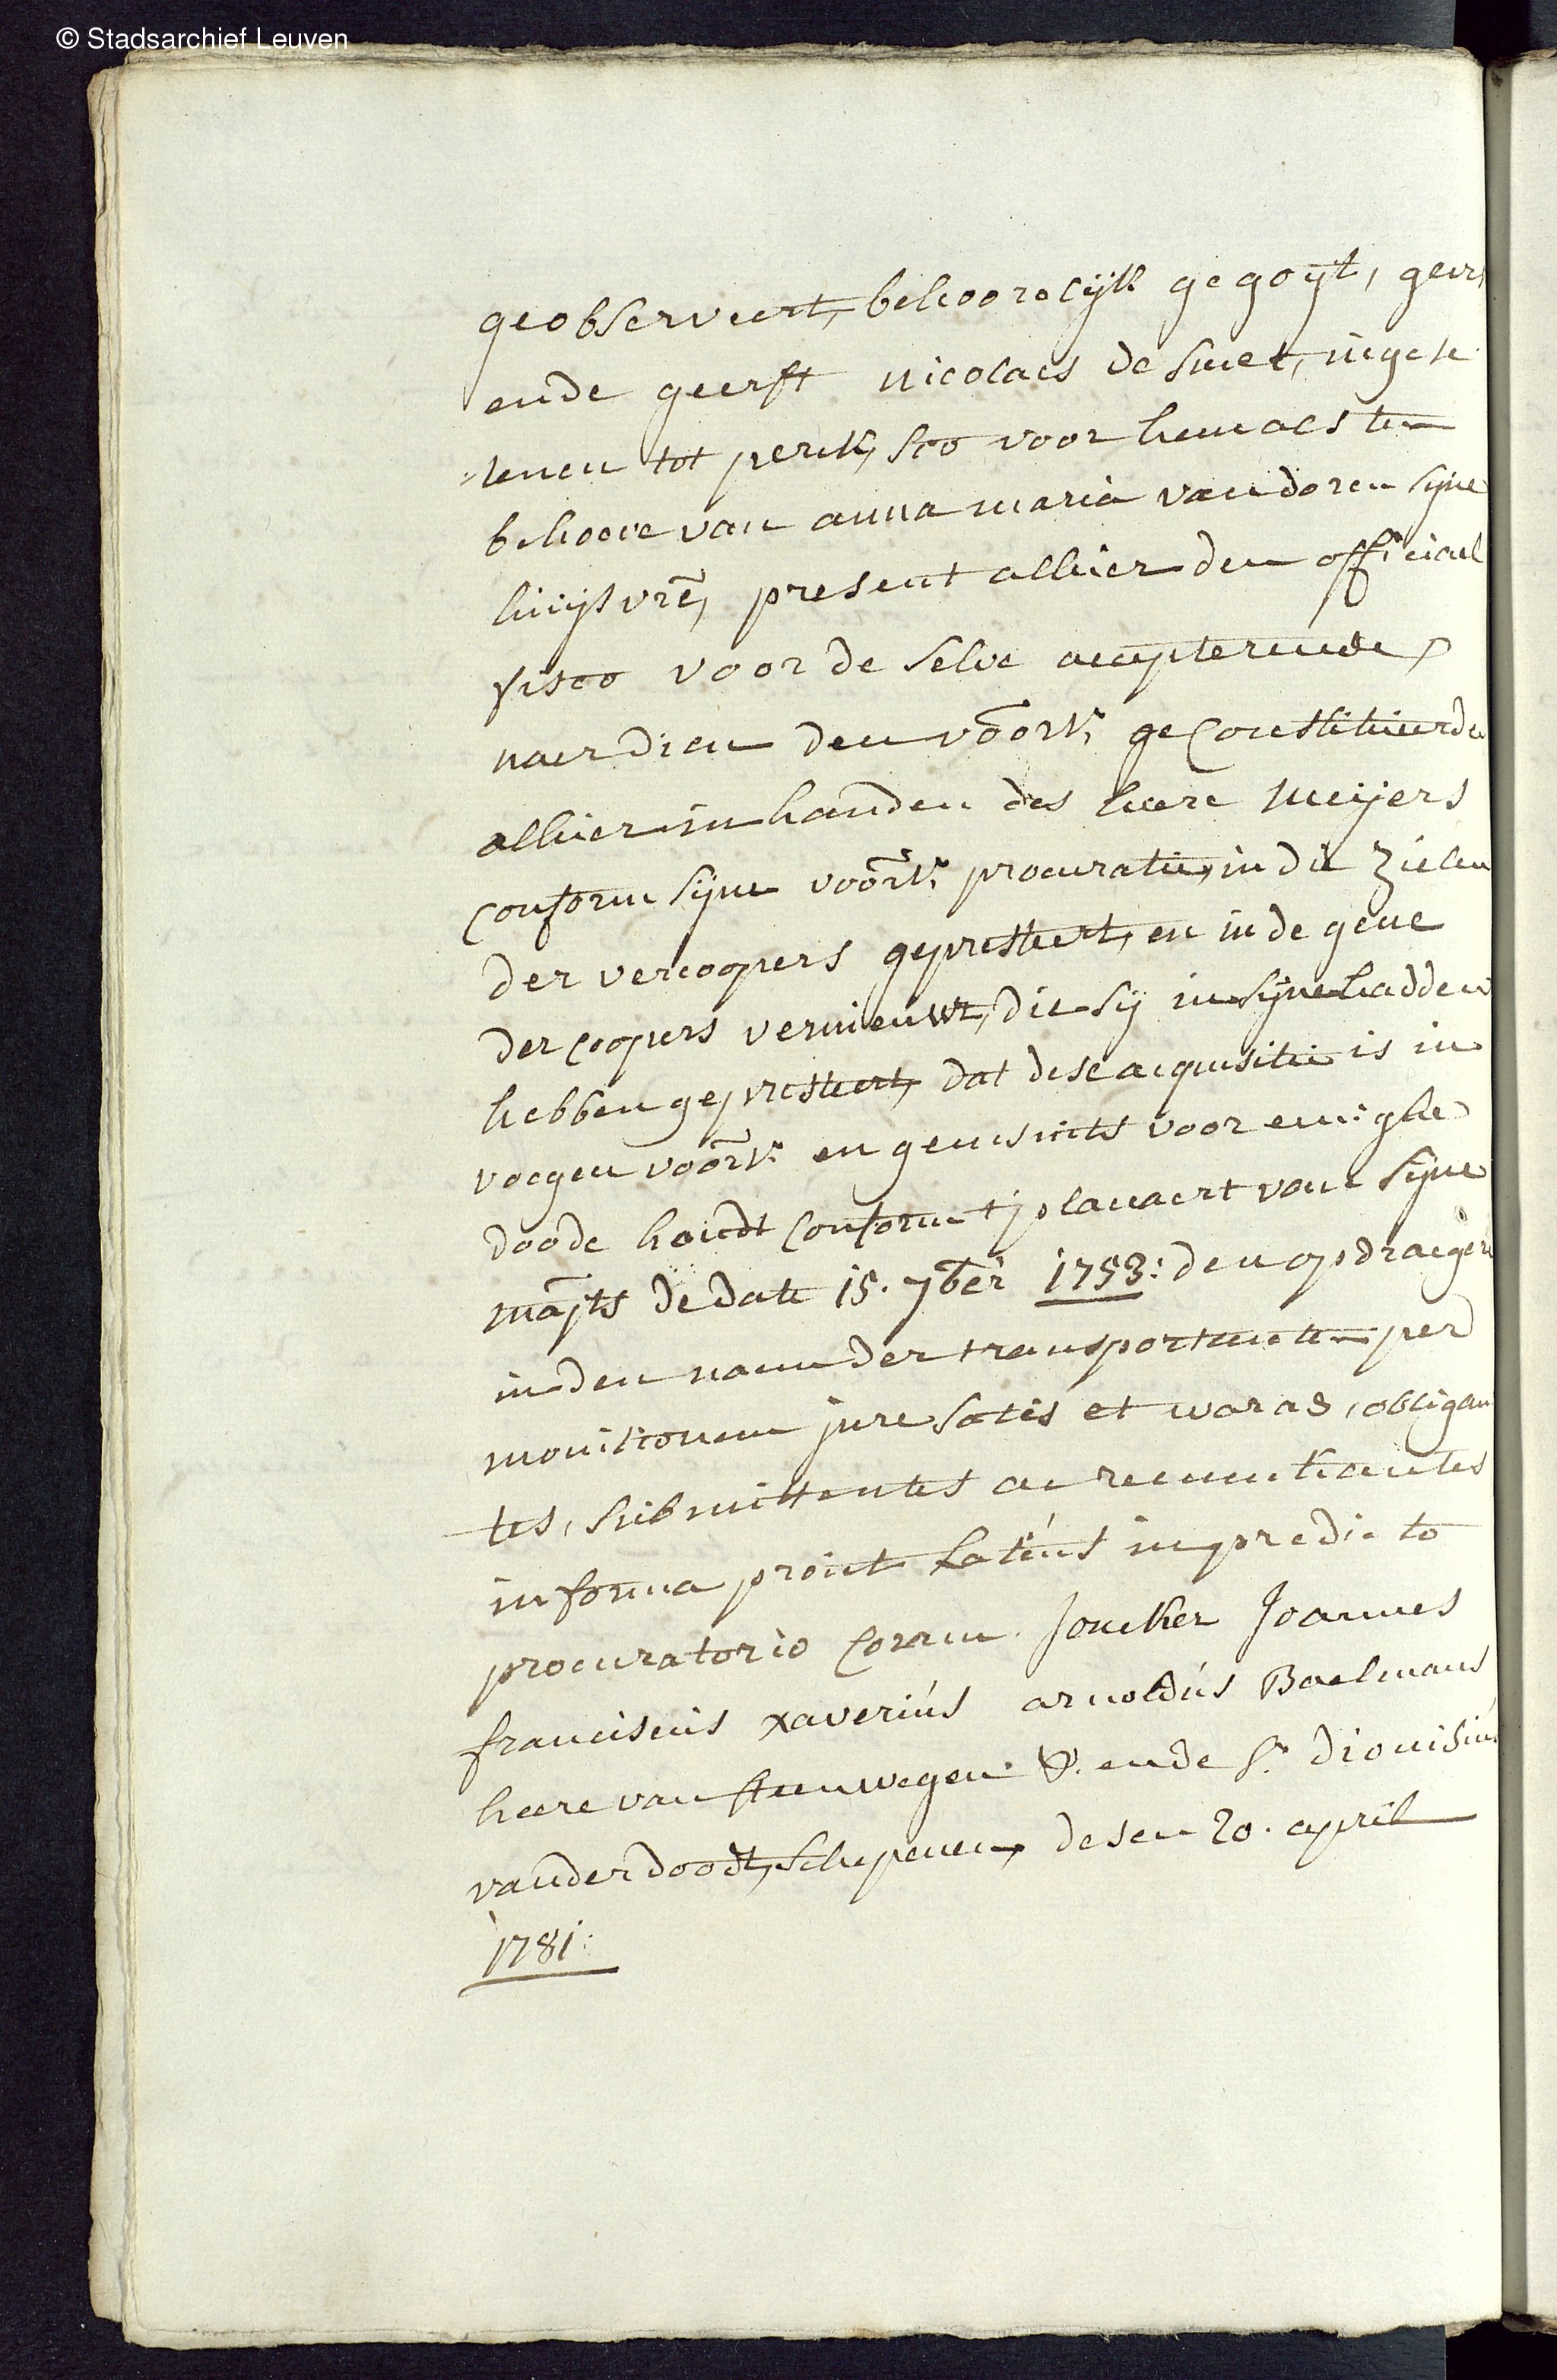 © Stadsarchief Leuven
geobserveert, behoorelijk gegoyt, gevest
ende geerft nicolaes de smet, ingese
tenen tot perck, soo voor hem als ten
behoeve van anna maria van doren syne
huysvrē, present alhier den officiael
fisco voor de selve accepterende,
naerdien den voōrs: geconstitueerden
alhier in handen des heere meijers
conform syne voōrs: procuratie, in die zielen
der vercoopers gepresteert, en in de gene
der coopers vernieuwt, die sy in syne handen
hebben gepresteert, dat dese acquisitie is in
voegen voōrs: en geensints voor eenighe
doode handt conform t'placcaert van syne
maj̄ts de date 15. 7ber 1753: den opdraeger
in den naem der transportanten per
monitionem jure satis et waras, obligan
tes, submittentes ac renuntiantes
in forma proút latiús in predicto
procuratorio coram. Joncker Joannes
franciscus xaveriús arnoldús Baelmans
heere van steenwegen &. ende Sr. dionisiús
vander doodt, schepenen, desen 20. april
1781: